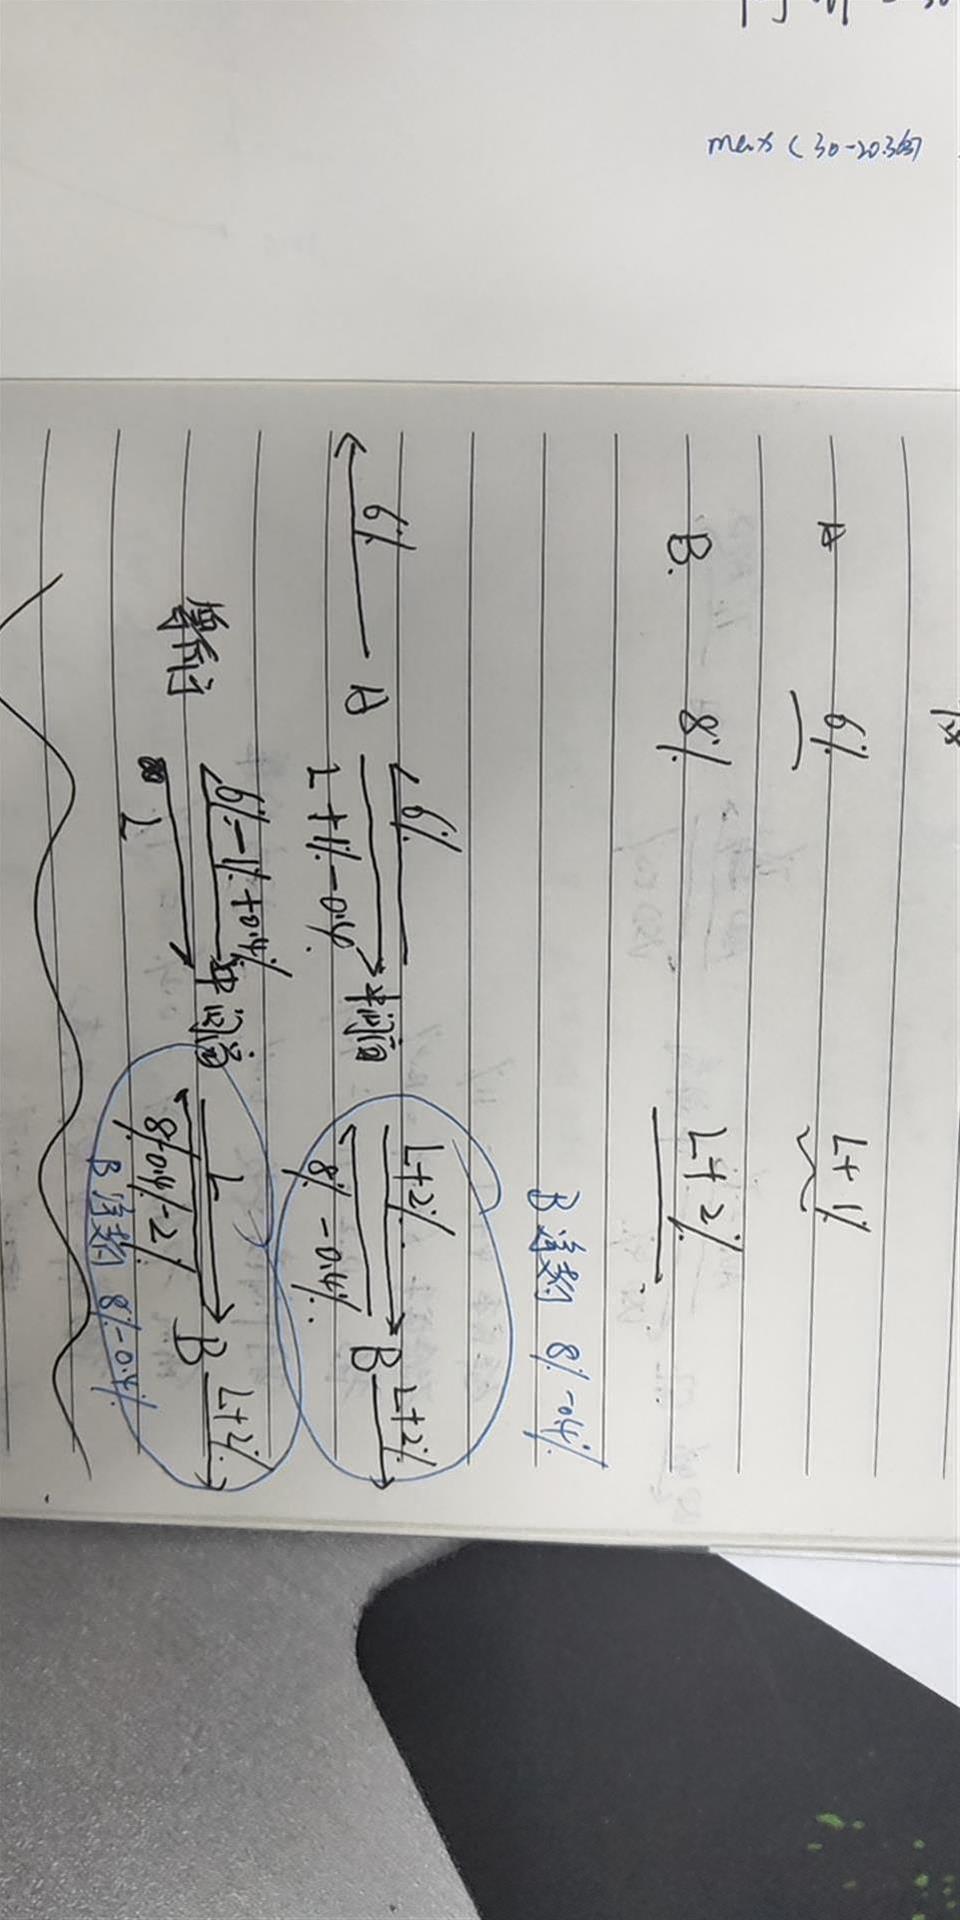 max (30-20.36)
A 6% L+1%
B. 8% L+2%
B 净数 8%-0.4%
6% L+2%
6% A 中间 B L+2%
L+1%-0.4 8%-0.4%
6%-1%+0.4% L L+2%
等价 中间 B
L 8%-0.4%-2%
B 净数 8%-0.4%